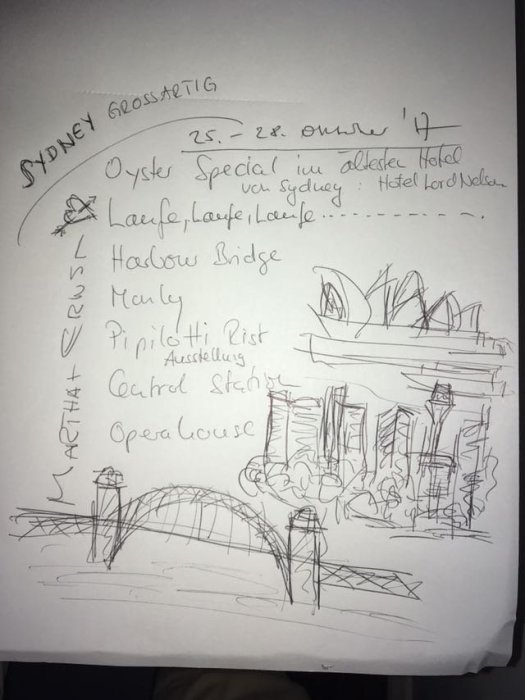 SYDNEY GROSSARTIG
25. - 28. Oktober '17
Oyster Special im ältesten Hotel
von Sydney : Hotel Lord Nelson
Laufe, Laufe, Laufe ..............
Harbour Bridge
Manly
Pipilotti Rist
Ausstellung
Central Station
Operahouse
MARTHA + ERNST